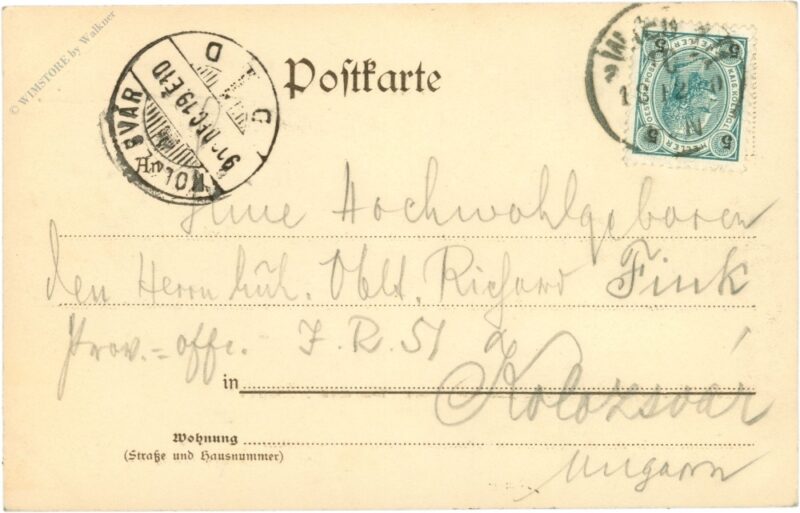 © WIMSTORE by Walkner
Postkarte
KOLOZSVÁR
DEC. 19. E10
5 5
HELLER
5 5
HELLER
Hochwohlgeboren
den Herrn Oblt. Richard Fink
Prov.=offr. I. R. 51
in Kolozsvár
Wohnung
(Straße und Hausnummer)
Ungarn